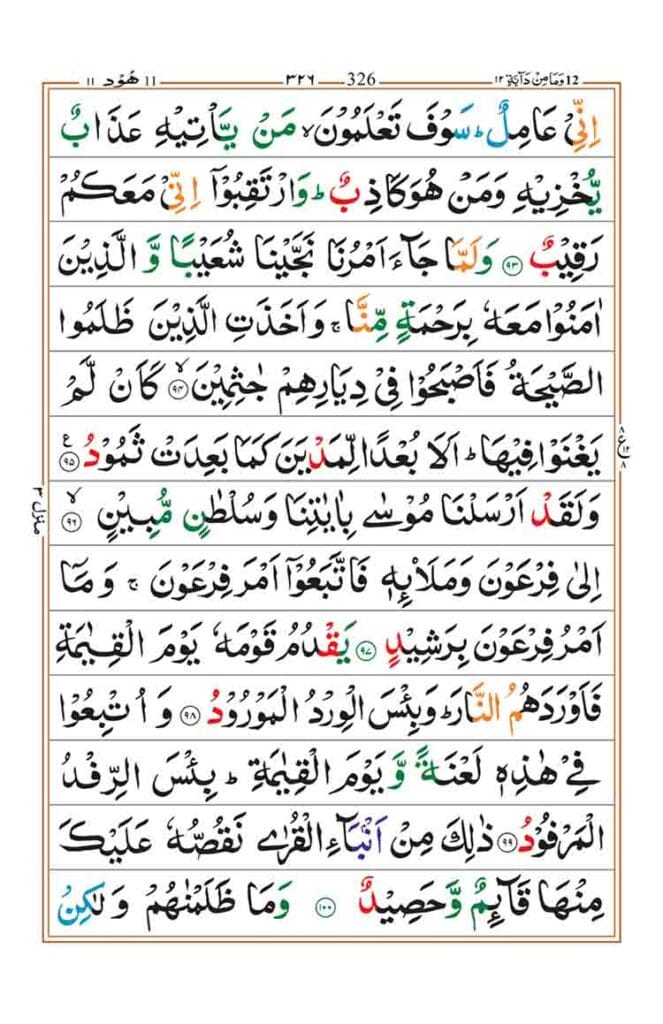 ١٢ وَمَا مِنْ دَآبَّةٍ 12 326 ٣٢٦ 11 هُوْد ١١
اِنِّىْ عَامِلٌ ؕ سَوْفَ تَعْلَمُوْنَ ۙ مَنْ يَّاْتِيْهِ عَذَابٌ
يُّخْزِيْهِ وَمَنْ هُوَ كَاذِبٌ ؕ وَارْتَقِبُوْۤا اِنِّىْ مَعَكُمْ
رَقِيْبٌ ﴿٩٣﴾ وَلَمَّا جَآءَ اَمْرُنَا نَجَّيْنَا شُعَيْبًا وَّ الَّذِيْنَ
اٰمَنُوْا مَعَهٗ بِرَحْمَةٍ مِّنَّا ۚ وَاَخَذَتِ الَّذِيْنَ ظَلَمُوا
الصَّيْحَةُ فَاَصْبَحُوْا فِىْ دِيَارِهِمْ جٰثِمِيْنَ ۙ﴿٩٤﴾ كَاَنْ لَّمْ
يَغْنَوْا فِيْهَا ؕ اَلَا بُعْدًا لِّمَدْيَنَ كَمَا بَعِدَتْ ثَمُوْدُ ﴿٩٥﴾ ع
وَلَقَدْ اَرْسَلْنَا مُوْسٰى بِاٰيٰتِنَا وَسُلْطٰنٍ مُّبِيْنٍ ۙ﴿٩٦﴾
اِلٰى فِرْعَوْنَ وَمَلَا۟ئِهٖ فَاتَّبَعُوْۤا اَمْرَ فِرْعَوْنَ ۚ وَمَاۤ
اَمْرُ فِرْعَوْنَ بِرَشِيْدٍ ﴿٩٧﴾ يَقْدُمُ قَوْمَهٗ يَوْمَ الْقِيٰمَةِ
فَاَوْرَدَهُمُ النَّارَ ؕ وَبِئْسَ الْوِرْدُ الْمَوْرُوْدُ ﴿٩٨﴾ وَ اُتْبِعُوْا
فِىْ هٰذِهٖ لَعْنَةً وَّ يَوْمَ الْقِيٰمَةِ ؕ بِئْسَ الرِّفْدُ
الْمَرْفُوْدُ ﴿٩٩﴾ ذٰلِكَ مِنْ اَنْۢبَآءِ الْقُرٰى نَقُصُّهٗ عَلَيْكَ
مِنْهَا قَآئِمٌ وَّ حَصِيْدٌ ﴿١٠٠﴾ وَمَا ظَلَمْنٰهُمْ وَ لٰكِنْ
منزل ٣